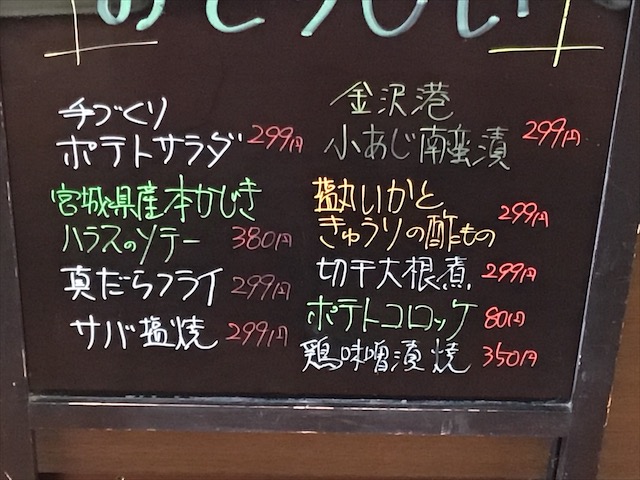 手づくり
ポテトサラダ 299円
宮城県産本かじき
ハラスのソテー 380円
真だらフライ 299円
サバ塩焼 299円
金沢港
小あじ南蛮漬 299円
塩丸いかと
きゅうりの酢もの 299円
切干大根煮 299円
ポテトコロッケ 80円
鶏味噌漬焼 350円